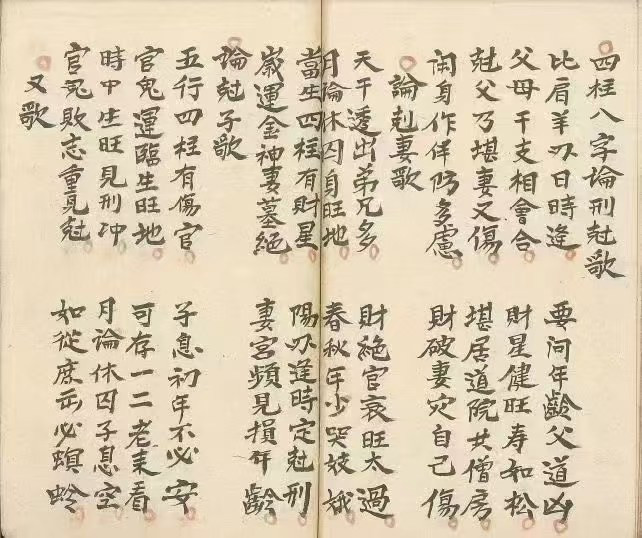 四柱八字論刑尅歌
比肩羊刃日時逢 要问年齡父道凶
父母干支相會合 財星健旺寿如松
尅父乃堪妻又傷 堪居道院共僧房
闲身作伴防多慮 財破妻灾自己傷
論尅妻歌
天干透出弟兄多 財絕官衰旺太過
月論休囚身旺地 春秋年少哭姣娥
當生四柱有財星 陽刃逢時定尅刑
歲運金神妻墓絕 妻宮頻見損年齡
論尅子歌
五行四柱有傷官 子息初年不必安
官鬼運臨生旺地 可存一二老来看
時中生旺見刑冲 月論休囚子息空
官鬼敗志重見尅 如從庶出必螟蛉
又歌